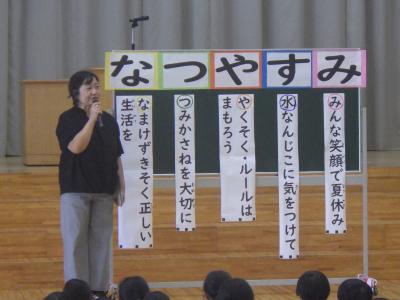 なつやすみ
なまけずきそく正しい
生活を
つみかさねを大切に
やくそく・ルールは
まもろう
水なんじこに気をつけて
みんな笑顔で夏休み